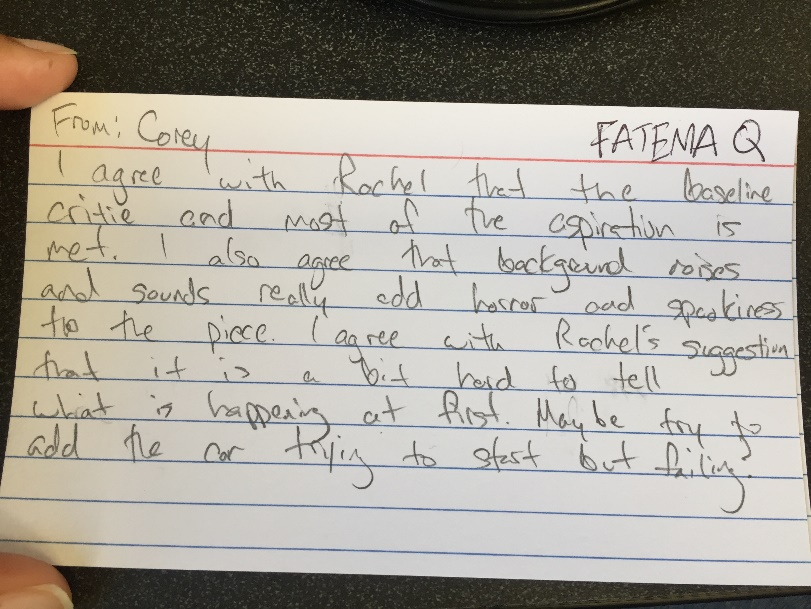 From: Corey FATEMA Q
I agree with Rachel that the baseline
critie and most of the aspiration is
met. I also agree that backgeround noises
and sounds really add horror and spookiness
to the piece. I agree with Rachel's suggestion
that it is a bit hard to tell
what is happening at first. Maybe try to
add the car trying to start but failing.